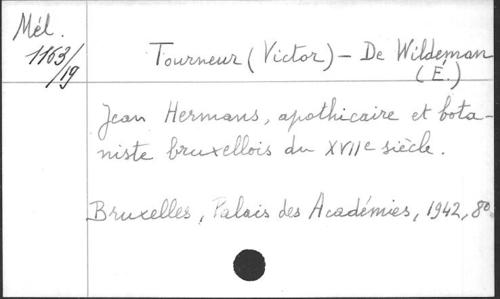 Mél.
1163/19
Tourneur (Victor) – De Wildeman
(É.)
Jean Hermans, apothicaire et bota-
niste bruxellois du XVIIe siècle.
Bruxelles, Palais des Académies, 1942, 8º.